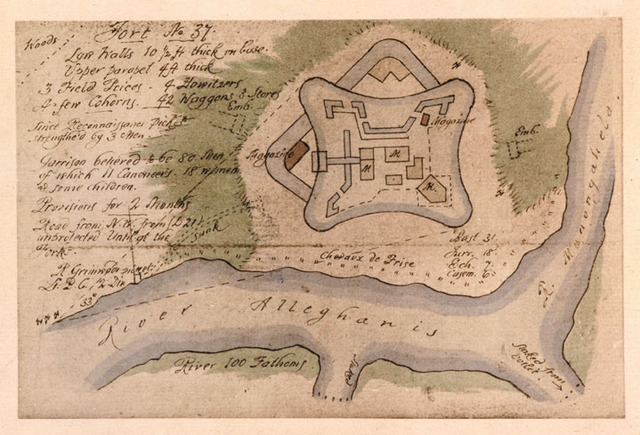 Woods
Fort No 37.
Low Walls 10½ ft thick on base.
Upper parapet 4 ft thick
3 Field Peices 4 Howitzers
A few Cohorns. 42 Waggons & Stores
Emb.
Since Reconnaissance
strengthe'd by 3 Men
Garrison beleved to be 80 Men
of which 11 Canoneers. 18 women
& some children.
Provisions for 2 Months
Road from N.
unprotected Until
Magazine
Magazine
Emb.
M.
M.
Chevaux de Frise
Bast. 31
Curr. 18
Ech. 7
Casem. 6
River Alleghanis
R. Monongaheld
River 100 Fathoms